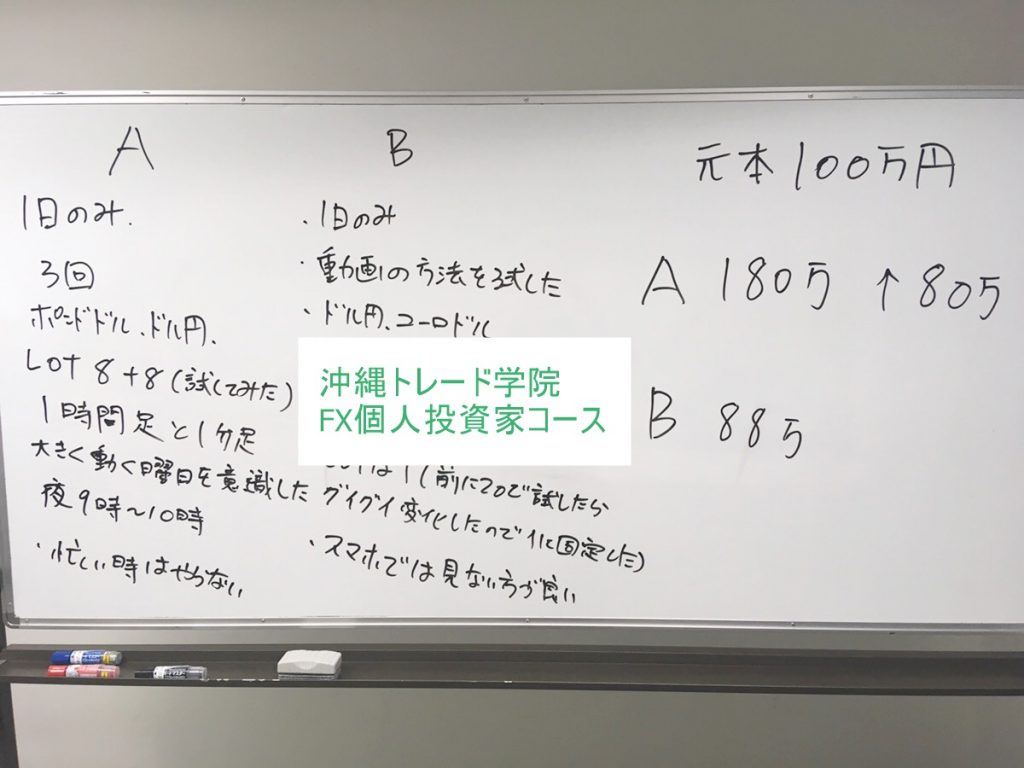 A
1日のみ.
3回
ポンドドル、ドル円、
Lot 8+8 (試してみた)
1時間足と1分足
大きく動く曜日を意識した
夜9時~10時
・忙しい時はやらない
B
・1日のみ
・動画1の方法を3試した
・ドル円、ユーロドル
沖縄トレード学院
FX個人投資家コース
は1(前に20で試したら
グイグイ変化したので1に固定した)
・スマホでは見ない方が良い
元本100万円
A 180万 ↑80万
B 88万